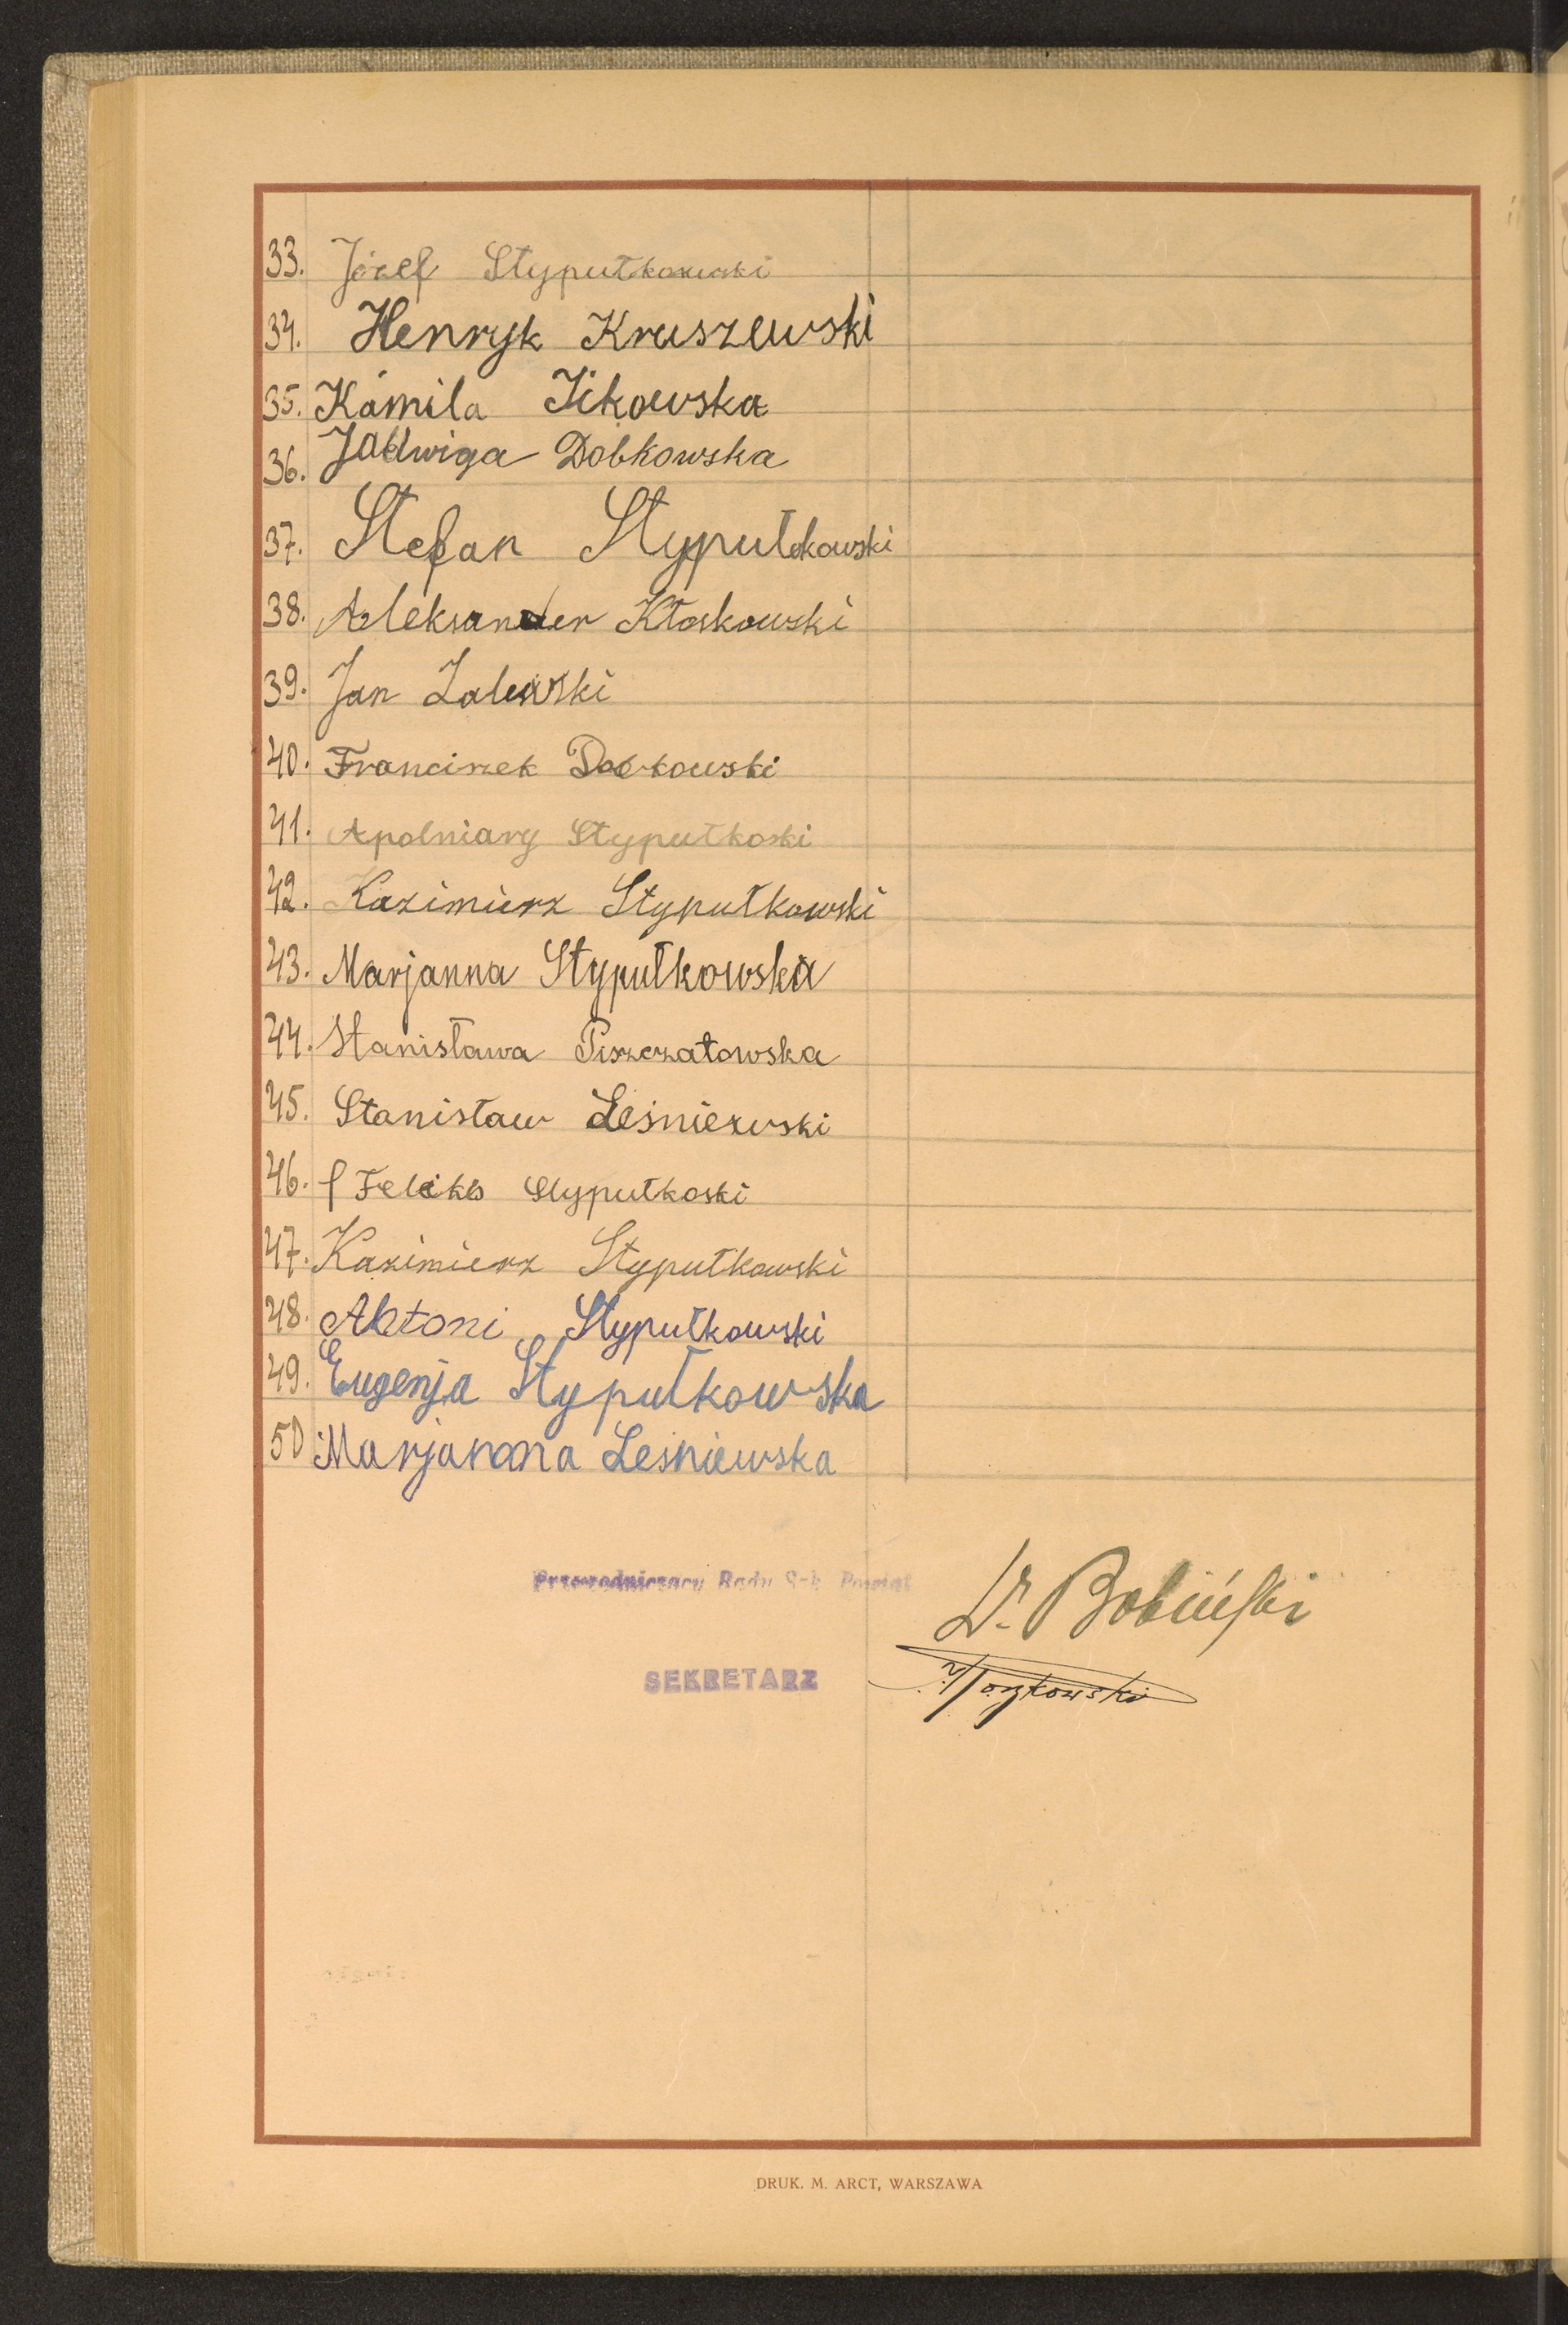 33. Józef Stypułkowski
34. Henryk Kruszewski
35. Kamila Ickowska
36. Jadwiga Dobkowska
37. Stefan Stypułkowski
38. Aleksander Kłoskowski
39. Jan Zalewski
40. Franciszek Dobkowski
41. Apolniary Stypułkoski
42. Kazimierz Stypułkowski
43. Marjanna Stypułkowska
44. Stanisława Piszczatowska
45. Stanisław Leśniewski
46. Feliks Stypułkoski
47. Kazimierz Stypułkowski
48. Antoni Stypułkowski
49. Eugenja Stypułkowska
50 Marjanna Leśniewska
Przewodniczący Rady Szk. Powiat
Dr. Bobiński
SEKRETARZ
DRUK. M. ARCT, WARSZAWA